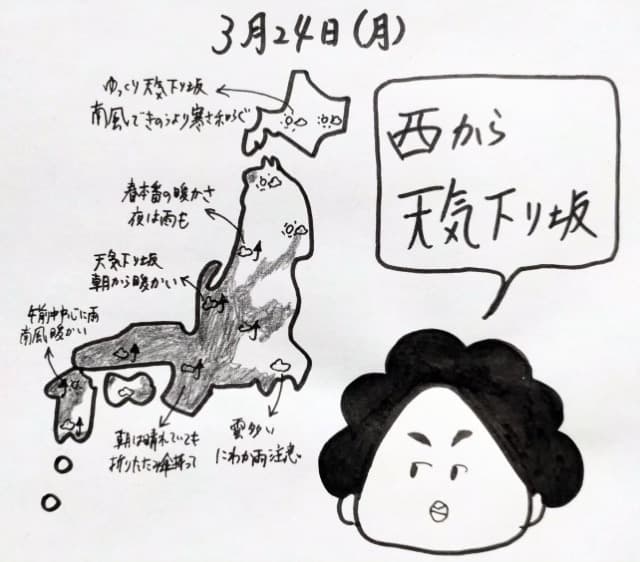 3月24日(月)
ゆっくり天気下り坂
南風できのうより寒さ和らぐ
春本番の暖かさ
夜は雨も
天気下り坂
朝から暖かい
午前中中心に雨
南風暖かい
朝は晴れていても
折りたたみ傘持って
雲多い
にわか雨注意
西から
天気下り坂